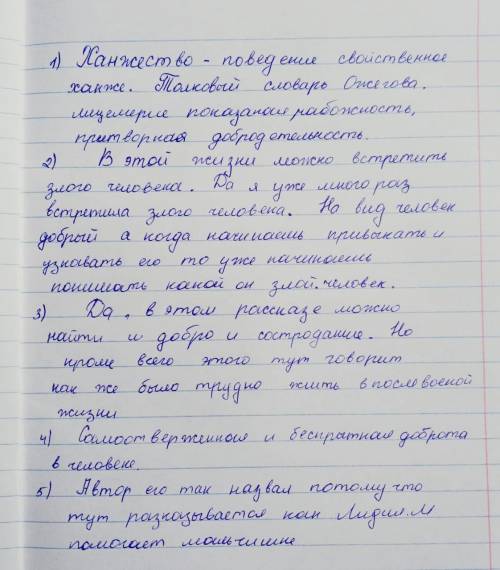 1) Ханжество - поведение свойственное
ханже. Толковый словарь Ожегова.
лицемерие показаная рабожность,
притворная добродетельность.
2) В этой жизни можно встретить
злого человека. Да я уже много раз
встретила злого человека. На вид человек
добрый а когда начинаешь привыкать и
узнавать его то уже начинаешь
понимать какой он злой человек.
3) Да, в этом рассказе можно
найти и добро и состродание. Но
кроме всего этого тут говорит
как же было трудно жить в после военой
жизни
4) Самоотверженная и беспратная доброта
в человеке.
5) Автор его так назвал потому что
тут разказывается как Лидия.М
помогает мальчишке